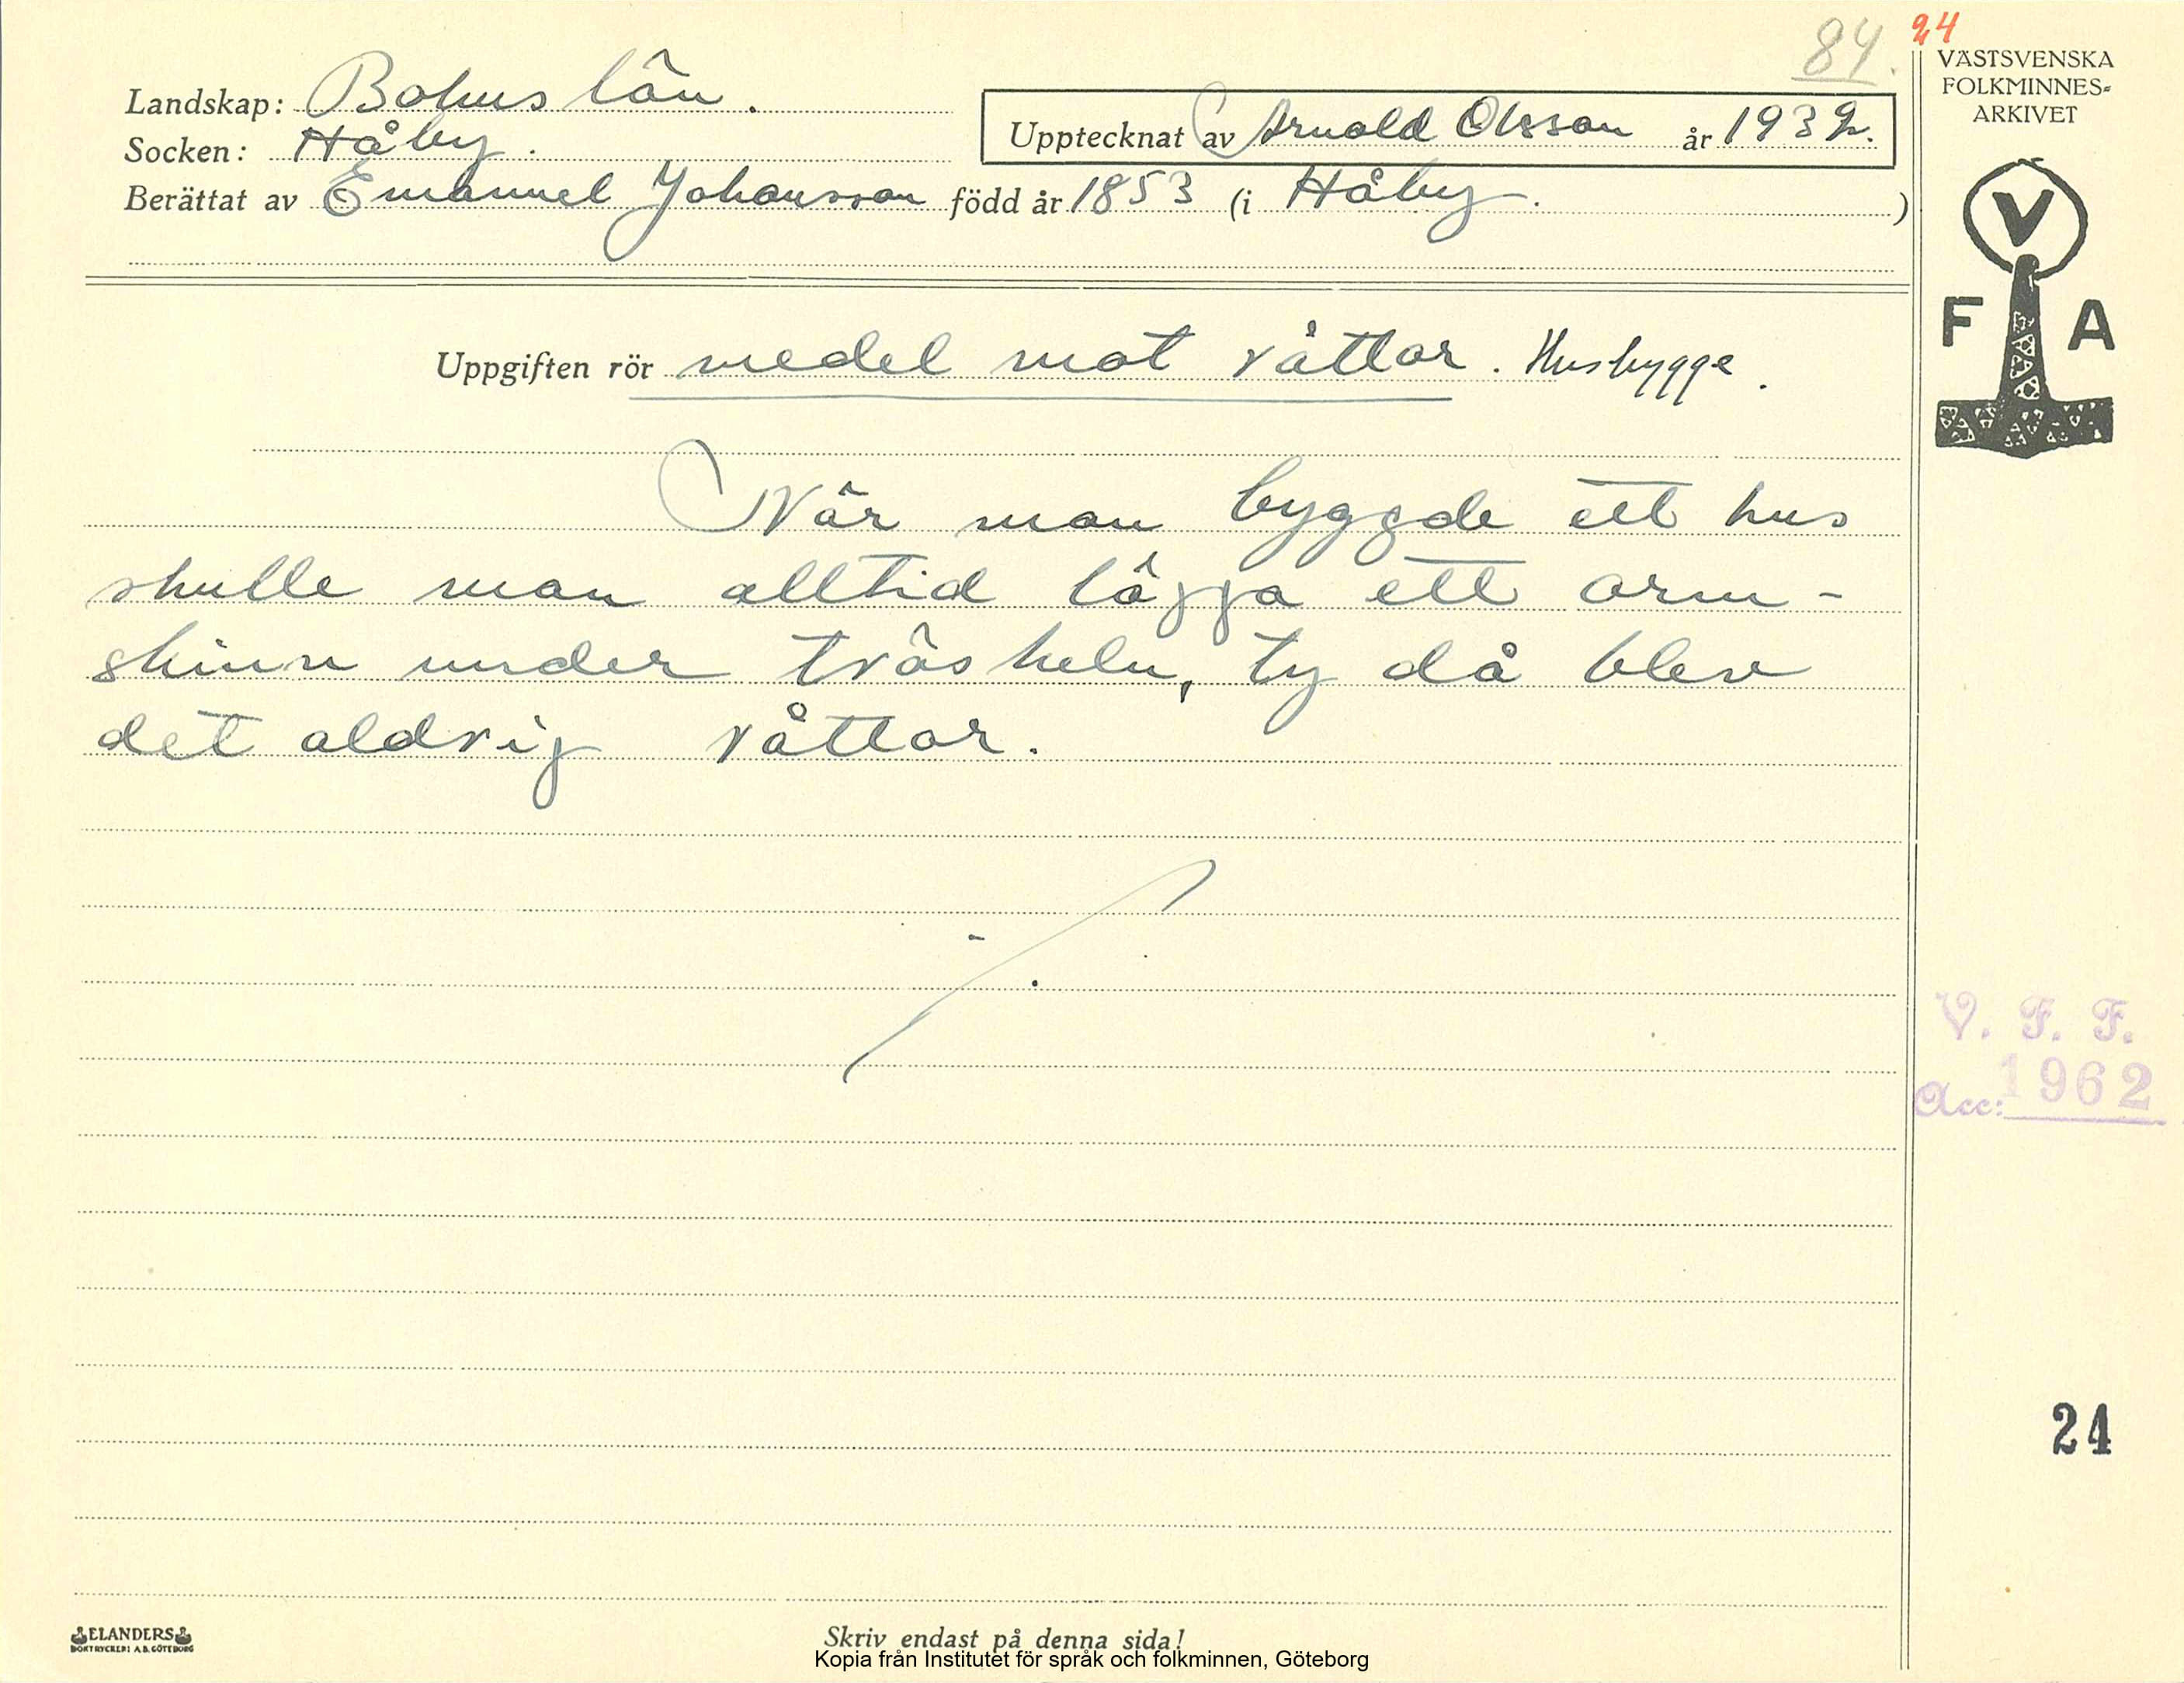 84. 24
VÄSTSVENSKA
FOLKMINNES=
ARKIVET
Landskap: Bohus län.
Upptecknat av Arnold Olsson år 1932.
Socken: Håby.
Berättat av Emanuel Johansson född år 1853 (i Håby. )
V
F A
Uppgiften rör medel mot råttor. Husbygge.
När man byggde ett hus
skulle man alltid lägga ett orm-
skinn under tröskeln, ty då blev
det aldrig råttor.
V. F. F.
Acc: 1962
24
ELANDERS
BOKTRYCKERI A.B. GÖTEBORG
Skriv endast på denna sida!
Kopia från Institutet för språk och folkminnen, Göteborg